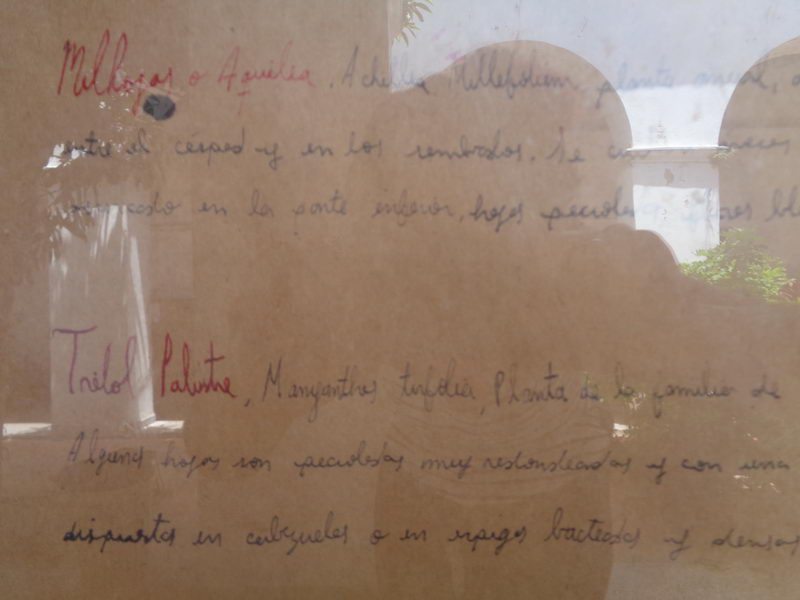 Milhojas o Aquilea. Achillea Millefolium, planta anual,
entre el césped y en los sembrados. Se
en la parte inferior, hojas pecioladas flores
Trébol Palustre, Manyanthes trifolia, Planta de la familia de
Algunas hojas son pecioladas muy redondeadas y con una
dispuestas en cabezuelas o en espigas bacteadas y densas